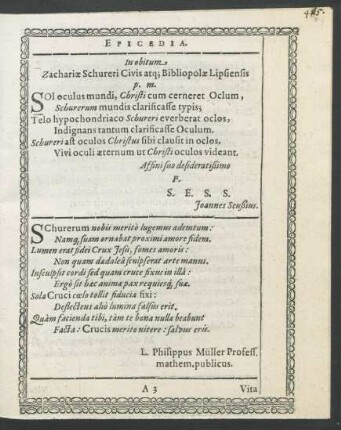 EPICEDIA.
In obitum
Zachariæ Schureri Civis atq; Bibliopolæ Lipsiensis
p. m.
SOl oculus mundi, Christi cum cerneret Oclum,
Schurerum mundis clarificasse typis;
Telo hypochondriaco Schureri everberat oclos,
Indignans tantum clarificasse Oculum.
Schureri ast oculos Christus sibi clausit in oclos,
Vivi oculi æternum ut Christi oculos videant.
Affini suo desideratissimo
F.
S. E. S. S.
Joannes Seussius.
SChurerum nobis meritò lugemus ademtum:
Namq; suam ornabat proximi amore fidem.
Lumen erat fidei Crux Jesu, fomes amoris:
Non quam dadaleâ sculpserat arte manus.
Insculpsit cordi sed quam cruce fixus in illâ:
Ergò sit hæc animæ pax requiesq; suæ.
Sola Cruci cælo tollit fiducia fixi:
Deflectens aliò lumina falsus erit.
Quàm facienda tibi, tàm te bona nulla beabunt
Facta: Crucis merito nitere: salvus eris.
L. Philippus Müller Profess.
mathem. publicus.
A 3
Vita